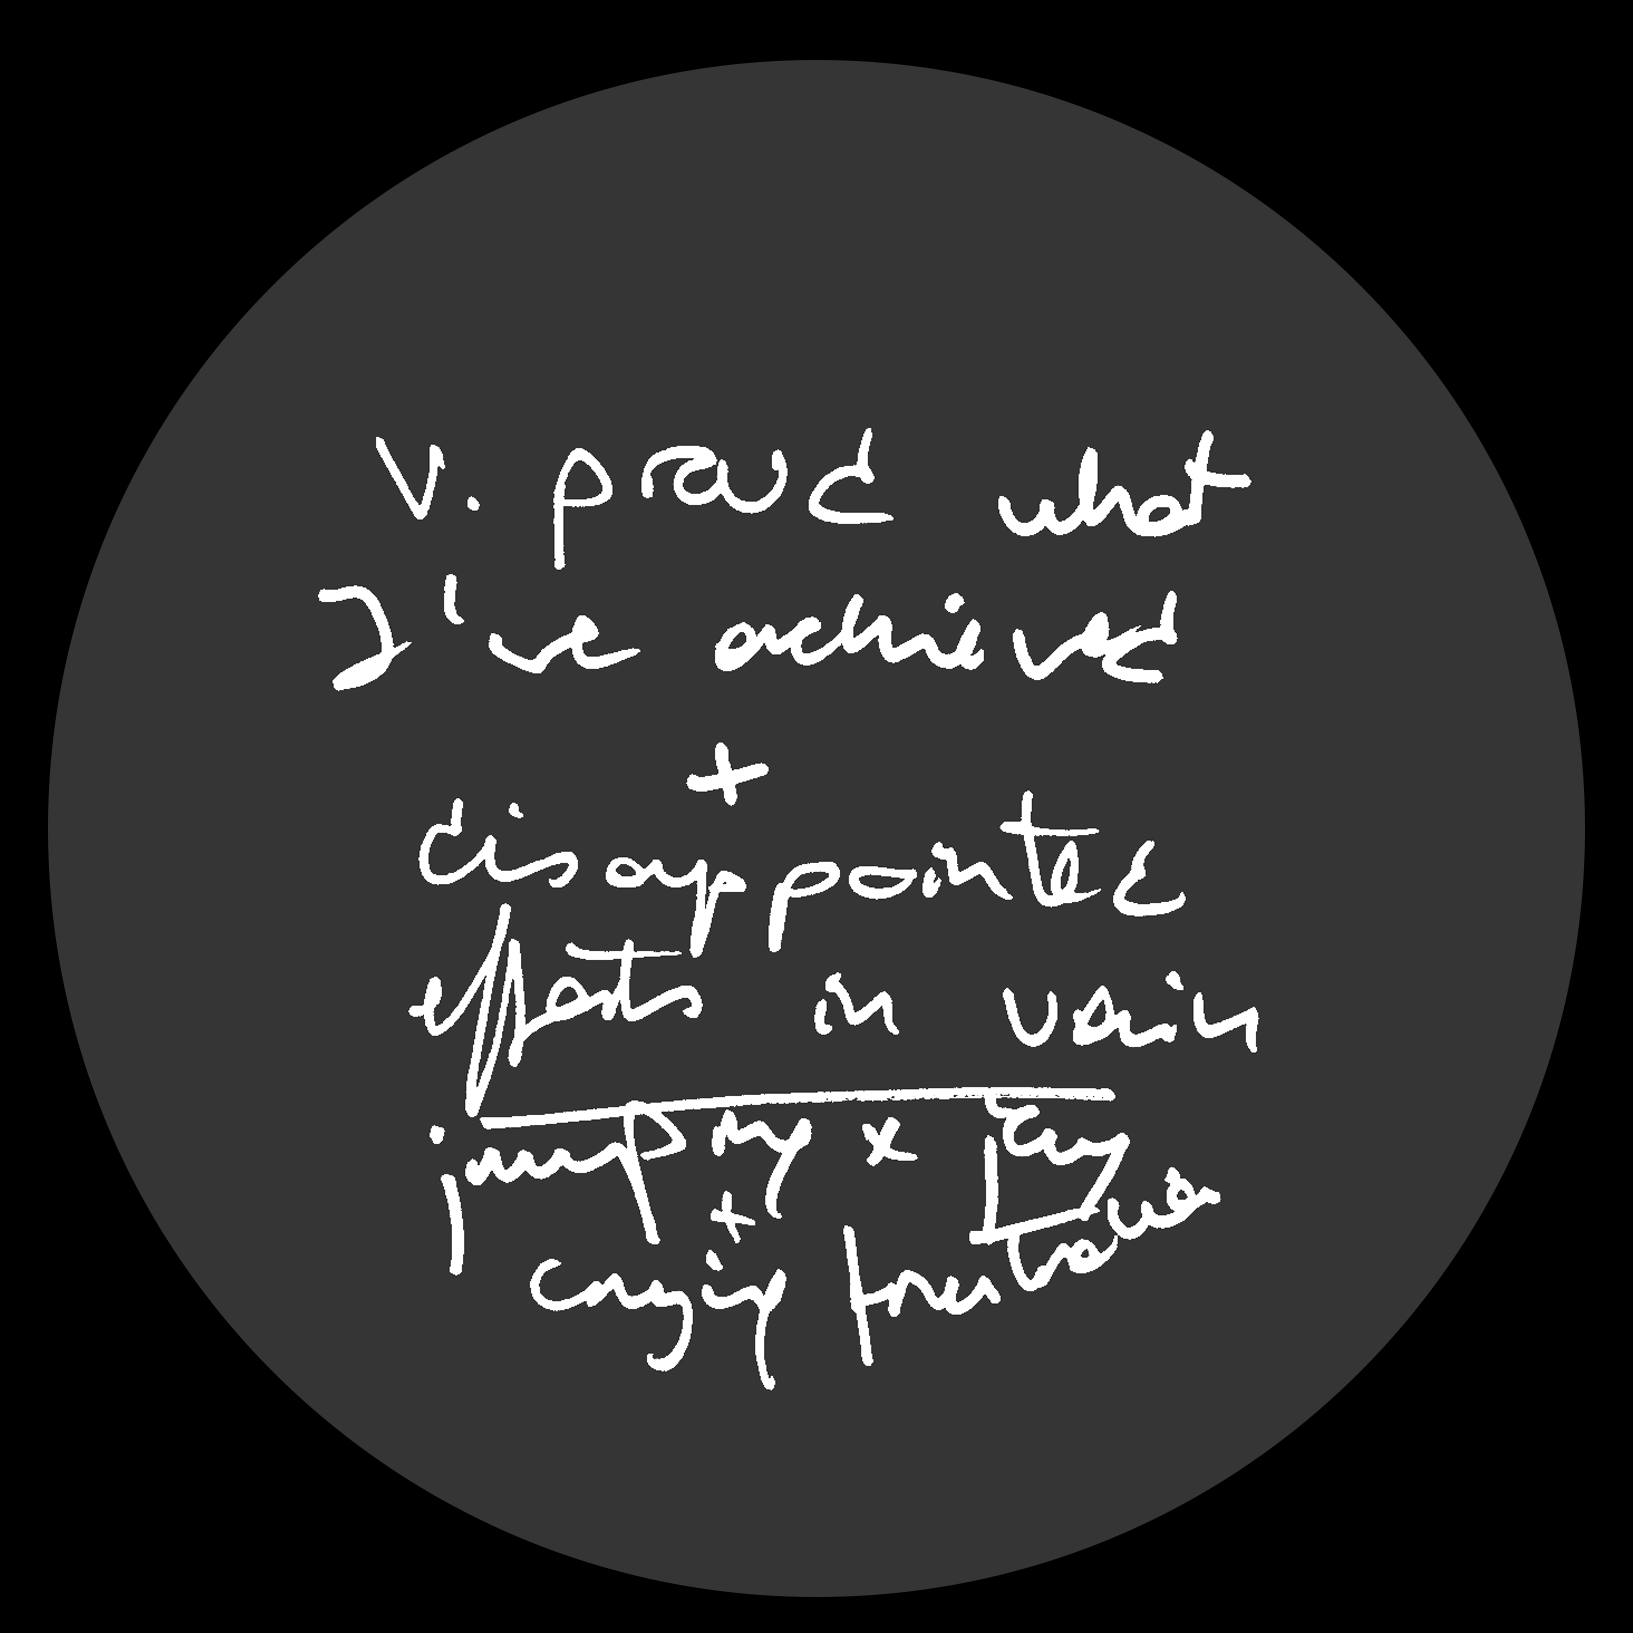 v. proud what
I've achieved
+
disappointed
efforts in vain
jumping x joy
+
crying frustration